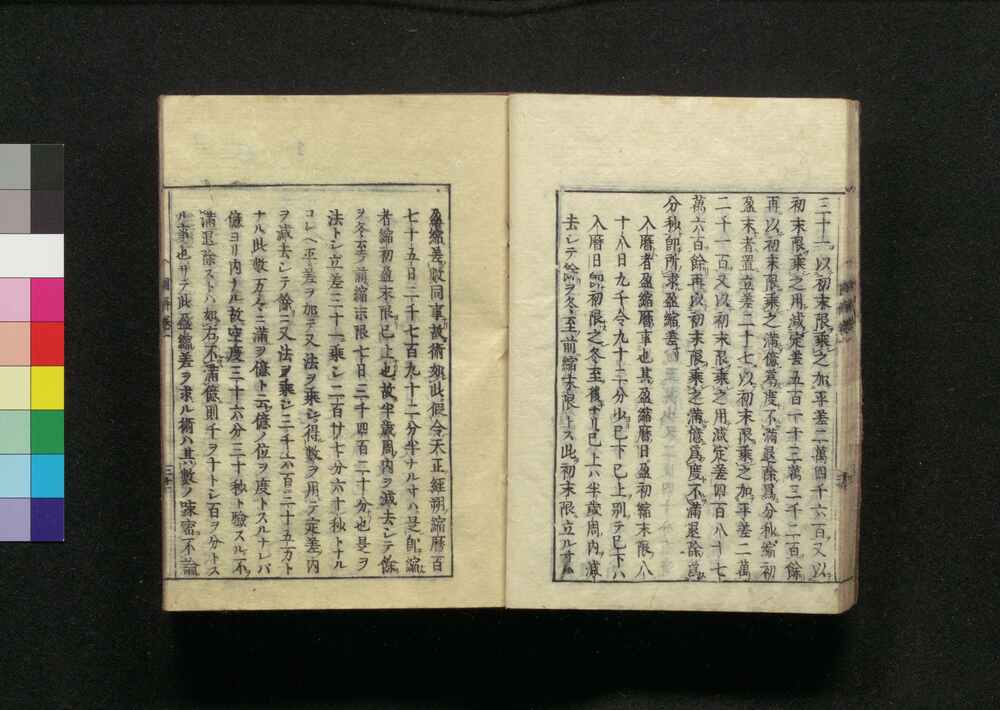 三十一以初末限乘之加平差二萬四千六百又以
初末限乘之用減定差五百一十三萬三千二百餘
再以初末限乘之滿億爲度不滿退除爲分秒縮初
盈末者置立差二十七以初末限乘之加平差二萬
二千一百又以初末限乘之用減定差四百八十七
萬六百餘再以初末限乘之滿億爲度不滿退除爲
分秒即所求盈縮差
入曆者盈縮曆事也其盈縮曆日盈初縮末限八
十八日九千令九十二分少已下已上別テ已下ハ
入曆日即初限之冬至後ナリ已上ハ半歲周内減
去シテ餘ヲ冬至前縮末限トス此初末限立ル寸ハ
盈縮差數同事故術如此假令天正經朔縮曆百
七十五日二千七百九十二分半ナル寸ハ是即縮
者縮初盈末限已上也故半歲周内ヲ減去シテ餘
ヲ冬至ヲ前縮末限七日三千四百二十分也是ヲ
法トシ立差三十一乘シ二百廿七分六十秒トナル
コレヘ平差ヲ加テ又法ヲ乘シ得數ヲ用テ定差内
ヲ減去シテ餘ニ又法ヲ乘シ三千六百三十五万ト
ナル此數万々ニ滿ヲ億ト云億ノ位ヲ度トスルナレバ
億ヨリ内ナル故空度三十六分三十秒ト驗スル不
滿退除ストハ如右不滿億則千ヲ十トシ百ヲ分トス
ル事也サテ此盈縮差ヲ求ル術ハ其數ノ味密不論